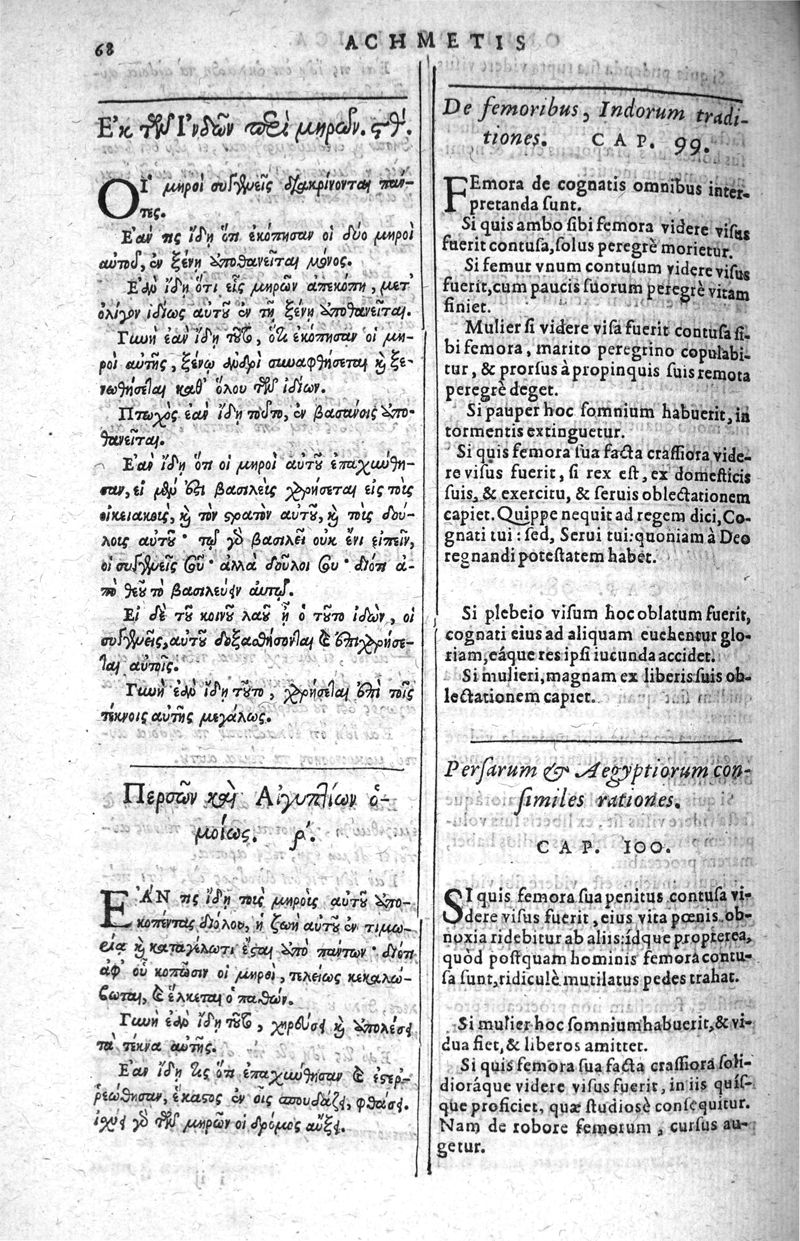 68
ACHMETIS
Ἐκ τῶν Ἰνδῶν περὶ μηρῶν. ϟθʹ.
ΟΙ μηροὶ συγγενεῖς διακρίνονται πάν-
τες.
Ἐάν τις ἴδῃ ὅτι ἐκόπησαν οἱ δύο μηροὶ
αὐτοῦ, ἐν ξένῃ ἀποθανεῖται μόνος.
Ἐὰν ἴδῃ ὅτι εἷς μηρῶν ἀπεκόπη, μετ'
ὀλίγον ἰδίως αὐτοῦ ἐν τῇ ξένῃ ἀποθανεῖται.
Γυνὴ ἐὰν ἴδῃ τοῦτο, ὅτι ἐκόπησαν οἱ μη-
ροὶ αὐτῆς, ξένῳ ἀνδρὶ συναφθήσεται καὶ ξε-
νωθήσεται καθ' ὅλου τῶν ἰδίων.
Πτωχὸς ἐὰν ἴδῃ τοῦτο, ἐν βασάνοις ἀπο-
θανεῖται.
Ἐὰν ἴδῃ ὅτι οἱ μηροὶ αὐτοῦ ἐπαχύνθη-
σαν, εἰ μὲν ἔστι βασιλεὺς χρήσεται εἰς τοὺς
οἰκειακοὺς, καὶ τὸν στρατὸν αὐτοῦ, καὶ τοὺς δού-
λους αὐτοῦ· τῷ γὰρ βασιλεῖ οὐκ ἔνι εἰπεῖν,
οἱ συγγενεῖς σου· ἀλλὰ δοῦλοι σου· διότι ἀ-
πὸ θεοῦ τὸ βασιλεύειν αὐτῷ.
Εἰ δὲ τοῦ κοινοῦ λαοῦ ᾖ ὁ τοῦτο ἰδὼν, οἱ
συγγενεῖς αὐτοῦ δοξασθήσονται καὶ ἐπιχρήσε-
ται αὐτοῖς.
Γυνὴ ἐὰν ἴδῃ τοῦτο, χρήσεται ἐπὶ τοῖς
τέκνοις αὐτῆς μεγάλως.
Περσῶν καὶ Αἰγυπτίων ὁ-
μοίως. ρʹ.
ΕΑΝ τις ἴδῃ τοὺς μηροὺς αὐτοῦ ἀπο-
κοπέντας διόλου, ἡ ζωὴ αὐτοῦ ἐν τιμω-
ρίᾳ καὶ καταγέλωτι ἔσται ὑπὸ πάντων· διότι
ἀφ' οὗ κοπῶσιν οἱ μηροὶ, τελείως κεκολώ-
βωται, καὶ ἕλκεται ὁ παθών.
Γυνὴ ἐὰν ἴδῃ τοῦτο, χηρεύσει καὶ ἀπολέσει
τὰ τέκνα αὐτῆς.
Ἐὰν ἴδῃ τις ὅτι ἐπαχύνθησαν καὶ ἐστερ-
ρεώθησαν, ἕκαστος ἐν οἷς σπουδάζει, φθάσει.
ἰσχύει γὰρ τῶν μηρῶν οἱ δρόμος αὔξει.
De femoribus, Indorum tradi-
tiones. CAP. 99.
FEmora de cognatis omnibus inter-
pretanda sunt.
Si quis ambo sibi femora videre visus
fuerit contusa, solus peregrè morietur.
Si femur vnum contusum videre visus
fuerit, cum paucis suorum peregrè vitam
finiet.
Mulier si videre visa fuerit contusa si-
bi femora, marito peregrino copulabi-
tur, & prorsus à propinquis suis remota
peregrè deget.
Si pauper hoc somnium habuerit, in
tormentis extinguetur.
Si quis femora sua facta crassiora vide-
re visus fuerit, si rex est, ex domesticis
suis, & exercitu, & seruis oblectationem
capiet. Quippe nequit ad regem dici, Co-
gnati tui: sed, Serui tui: quoniam à Deo
regnandi potestatem habet.
Si plebeio visum hoc oblatum fuerit,
cognati eius ad aliquam euehentur glo-
riam, eáque res ipsi iucunda accidet.
Si mulieri, magnam ex liberis suis ob-
lectationem capiet.
Persarum & Aegyptiorum con-
similes rationes.
CAP. 100.
SI quis femora sua penitus contusa vi-
dere visus fuerit, eius vita pœnis ob-
noxia ridebitur ab aliis: ídque propterea,
quòd postquam hominis femora contu-
sa sunt, ridiculè mutilatus pedes trahat.
Si mulier hoc somnium habuerit, & vi-
dua fiet, & liberos amittet.
Si quis femora sua facta crassiora soli-
dioráque videre visus fuerit, in iis quis-
que proficiet, quæ studiosè consequitur.
Nam de robore femorum, cursus au-
getur.